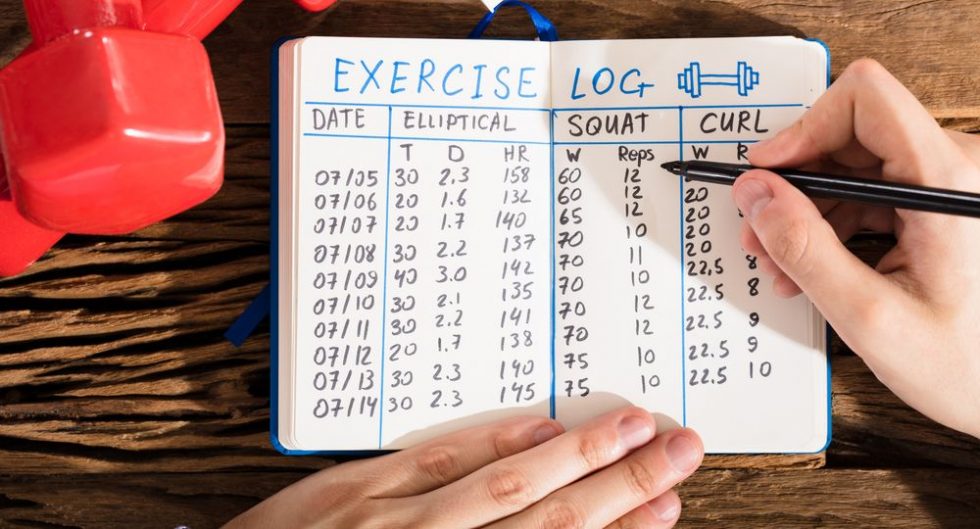 EXERCISE LOG
DATE ELLIPTICAL SQUAT CURL
T D HR W Reps W
07/05 30 2.3 158 60 12
07/06 20 1.6 132 60 12 20
07/07 20 1.7 140 65 12 20
07/08 30 2.2 137 70 10 20
07/09 40 3.0 142 70 11 20
07/10 30 2.1 135 70 10 22,5 8
07/11 30 2.2 141 70 12 22.5 8
07/12 20 1.7 138 70 12 22.5 9
07/13 30 2.3 140 75 10 22.5 9
07/14 30 2.3 145 75 10 22.5 10